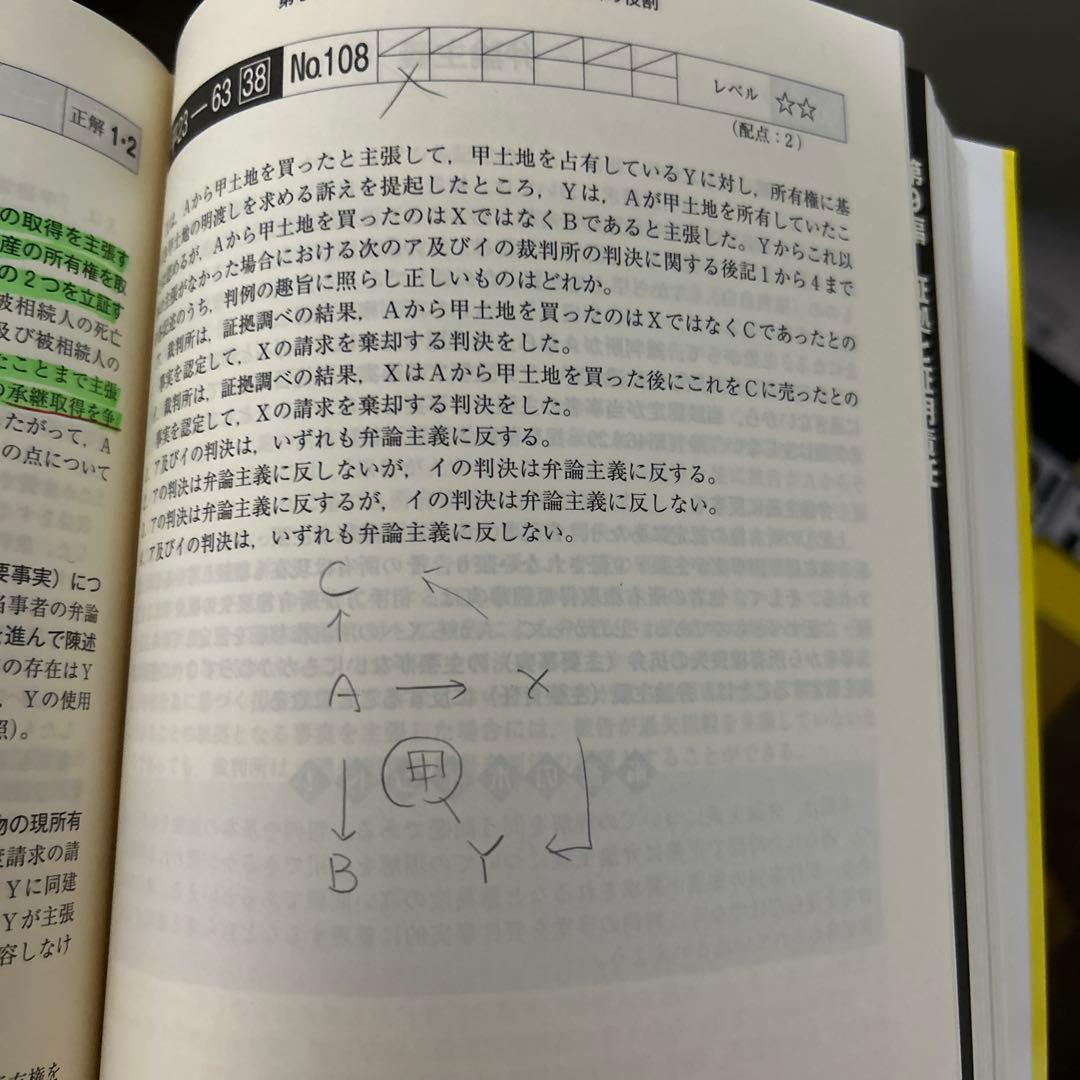 の役割
正解 1・2
63 38 No.108 レベル ☆☆
(配点:2)
は、Aから甲土地を買ったと主張して、甲土地を占有しているYに対し、所有権に基
甲土地の明渡しを求める訴えを提起したところ、Yは、Aが甲土地を所有していたこ
認めるが、Aから甲土地を買ったのはXではなくBであると主張した。Yからこれ以
主張がなかった場合における次のア及びイの裁判所の判決に関する後記1から4まで
記述のうち、判例の趣旨に照らし正しいものはどれか。
裁判所は、証拠調べの結果、Aから甲土地を買ったのはXではなくCであったとの
事実を認定して、Xの請求を棄却する判決をした。
裁判所は、証拠調べの結果、XはAから甲土地を買った後にこれをCに売ったとの
事実を認定して、Xの請求を棄却する判決をした。
ア及びイの判決は、いずれも弁論主義に反する。
アの判決は弁論主義に反しないが、イの判決は弁論主義に反する。
アの判決は弁論主義に反するが、イの判決は弁論主義に反しない。
ア及びイの判決は、いずれも弁論主義に反しない。
C
A → X
甲
B Y
の取得を主張す
産の所有権を取
の2つを立証す
被相続人の死亡
及び被相続人の
たことまで主張
の承継取得を争
たがって、A
の点について
要事実)につ
当事者の弁論
を進んで陳述
の存在はY
、Yの使用
照)。
物の現所有
度請求の請
Yに同建
Yが主張
容しなけ